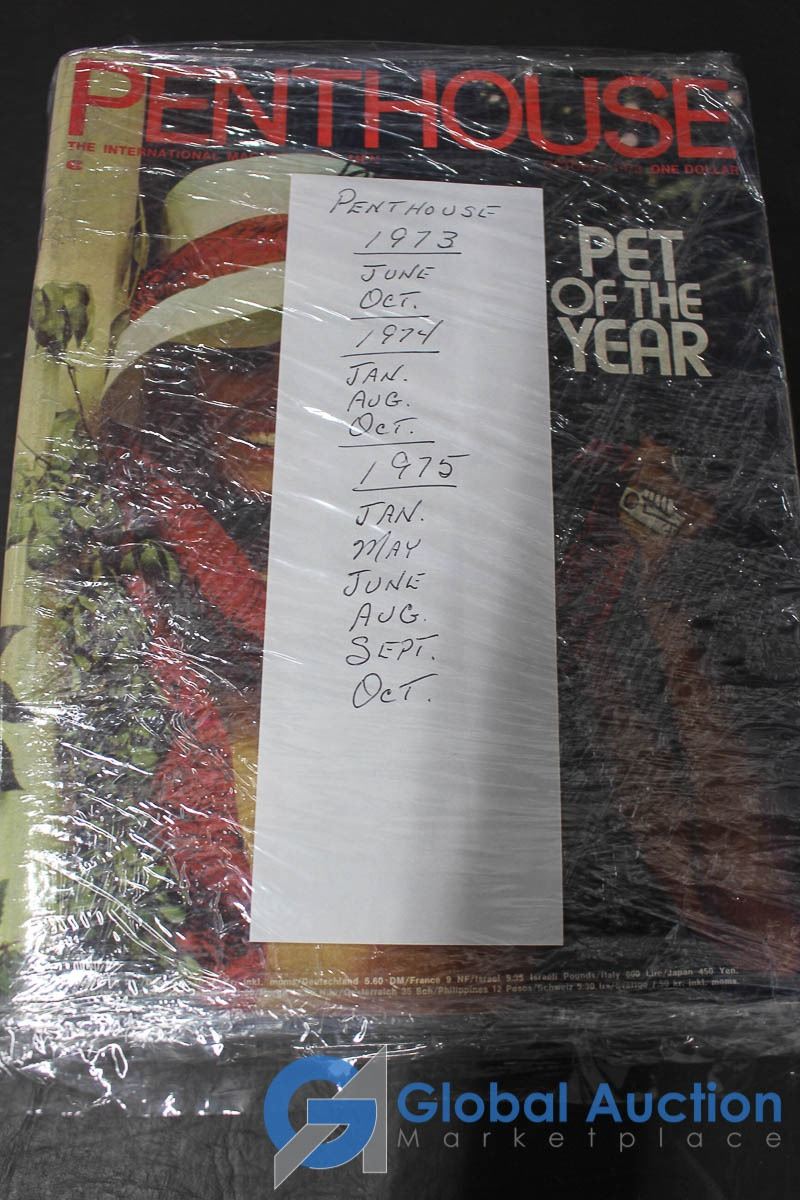 PENTHOUSE
THE INTERNATIONAL
ONE DOLLAR
PENTHOUSE
1973
JUNE
OCT.
1974
JAN.
AUG.
OCT.
1975
JAN.
MAY
JUNE
AUG.
SEPT.
OCT.
PET
OF THE
YEAR
inkl. moms/Deutschland 5.60 DM/France 9 NF/Israel 5.35 Israeli Pounds/Italy 800 Lire/Japan 450 Yen.
35 Sch/Philippines 12 Pesos/Schweiz 5:30 inkl. moms.
GA
Global Auction
Marketplace